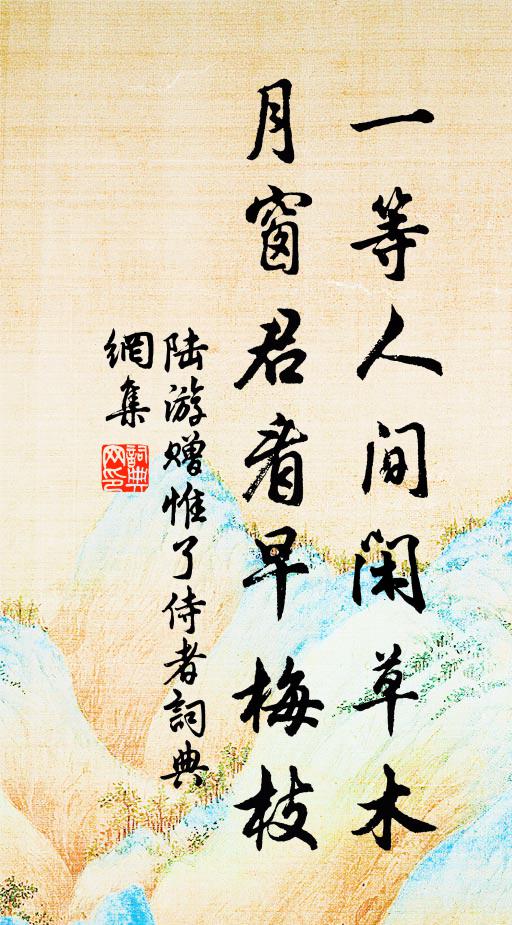 一等人间闲草木
月窗君看早梅枝
陆游赠惟了侍者詞典
網集
詞典
网印